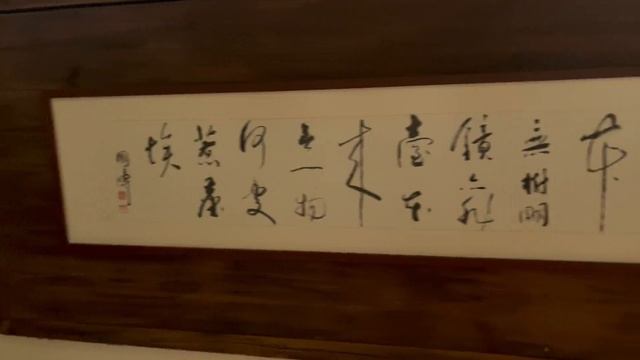 本
無樹明
鏡亦非
臺本
來
無一物
何處
惹塵
埃